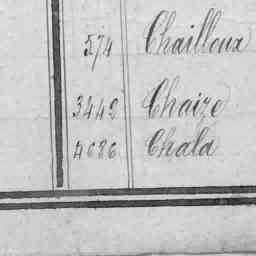 574 Chailloux
3442 Chaize
4086 Chala